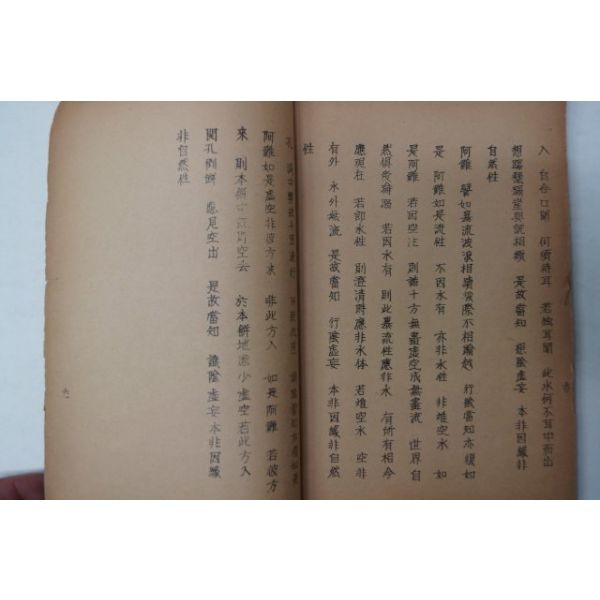 入 自合口聞 何須待耳 若独耳聞 此水何不耳中而出
想踏懸崖与說相類 是故當知 想陰虛妄 本非因緣非
自然性
阿難 譬如暴流波浪相續前際後際不相踰越 行陰當知亦復如
是 阿難 如是流性 不因空生 不因水有 亦非水性 非離空水 如
是阿難 若因空生 則諸十方無盡虛空成無盡流 世界自
然俱受淪溺 若因水有 則此暴流性應非水 有所有相今
應現在 若即水性 則澄清時應非水体 若離空水 空非
有外 水外無流 是故當知 行陰虛妄 本非因緣非自然
性
阿難 如是虛空非彼方來 非此方入 如是 阿難 若彼方
來 則本瓶中既貯空去 於本瓶地應少虛空 若此方入
開孔倒瓶 應見空出 是故當知 識陰虛妄 本非因緣
非自然性